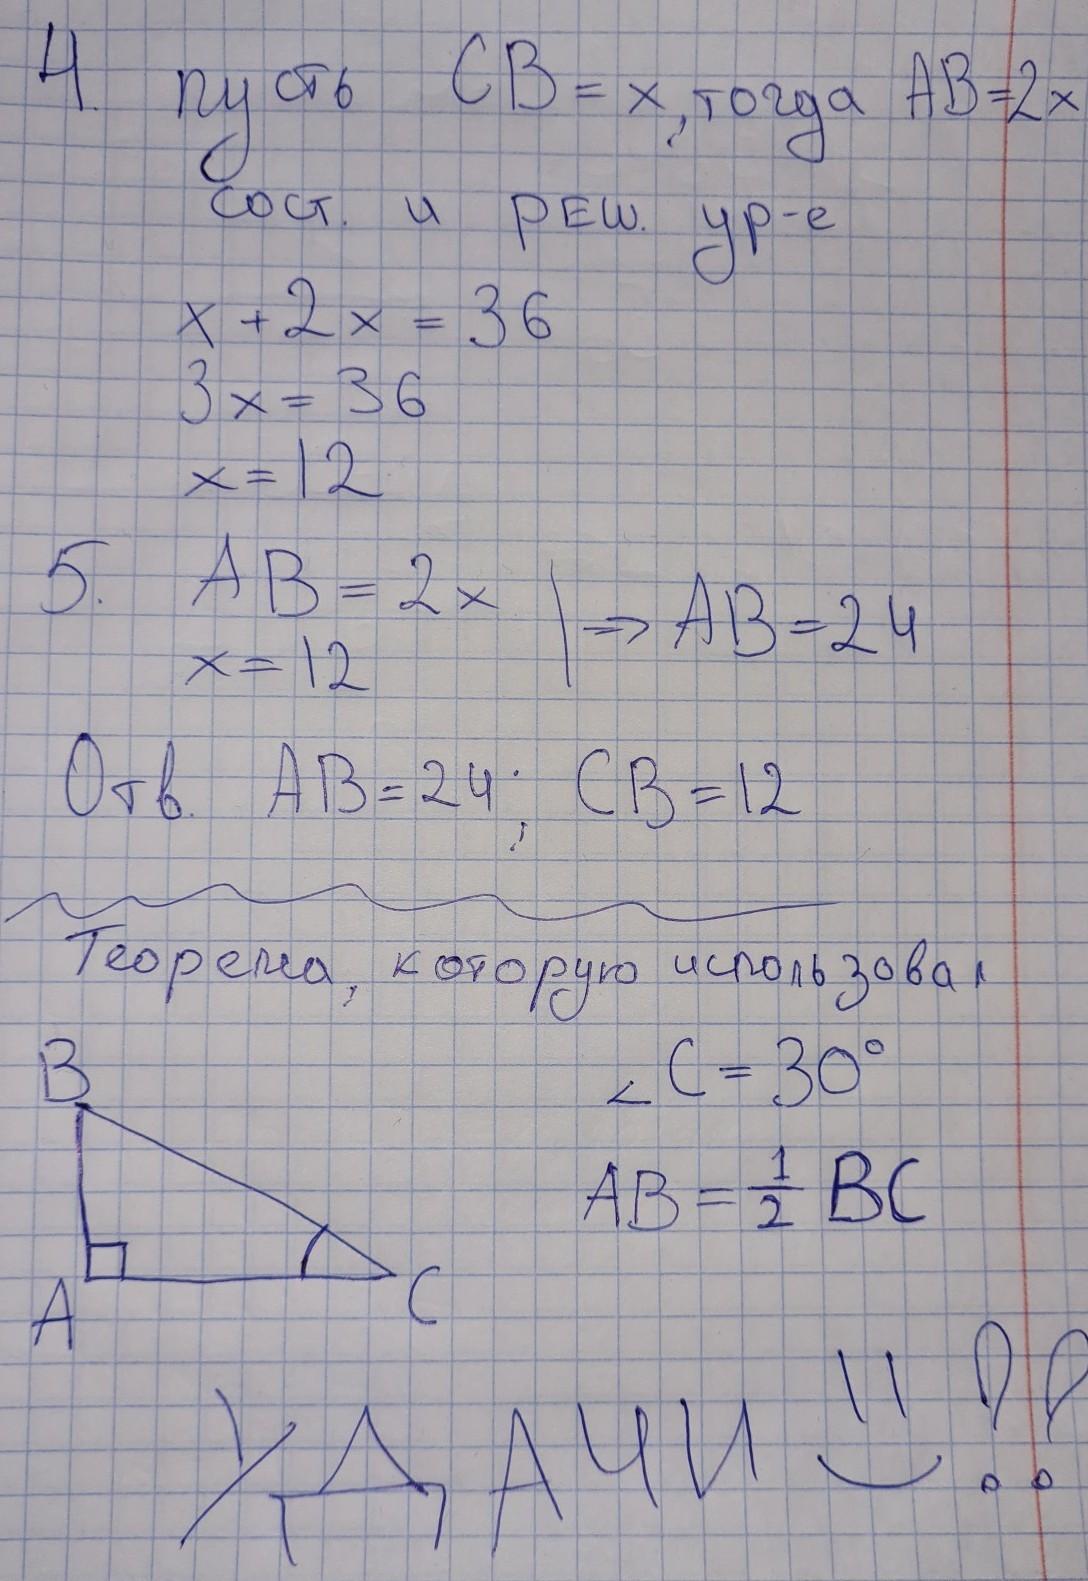 4. пусть CB = x, тогда AB = 2x
сост. и реш. ур-е
x + 2x = 36
3x = 36
x = 12
5. AB = 2x
x = 12
⇒ AB = 24
Отв. AB = 24; CB = 12
Теорема, которую использовал
B
∠C = 30°
AB = 1/2 BC
A
C
УДАЧИ !!